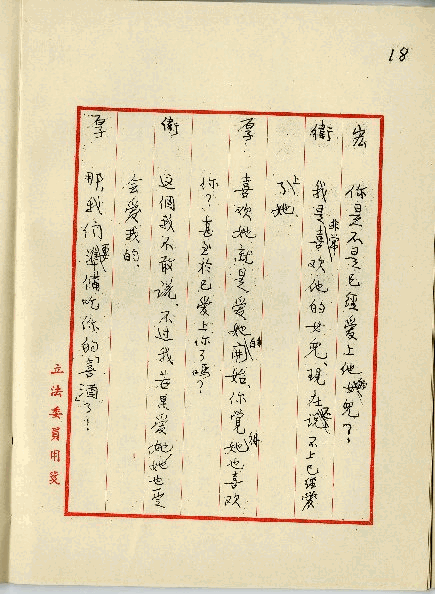 18
宏 你是不是已經愛上他女兒了？
衛 我是非常喜欢他的女兒、現在還說不上已經愛
上了她、
厚 喜欢她就是愛她的開始、你覺得她也喜欢
你？甚至於已愛上你了嗎？
衛 這個我不敢说、不过我若果愛她、她也是
会愛我的
厚 那我们要準備吃你的「喜酒」了！
立法委員用箋